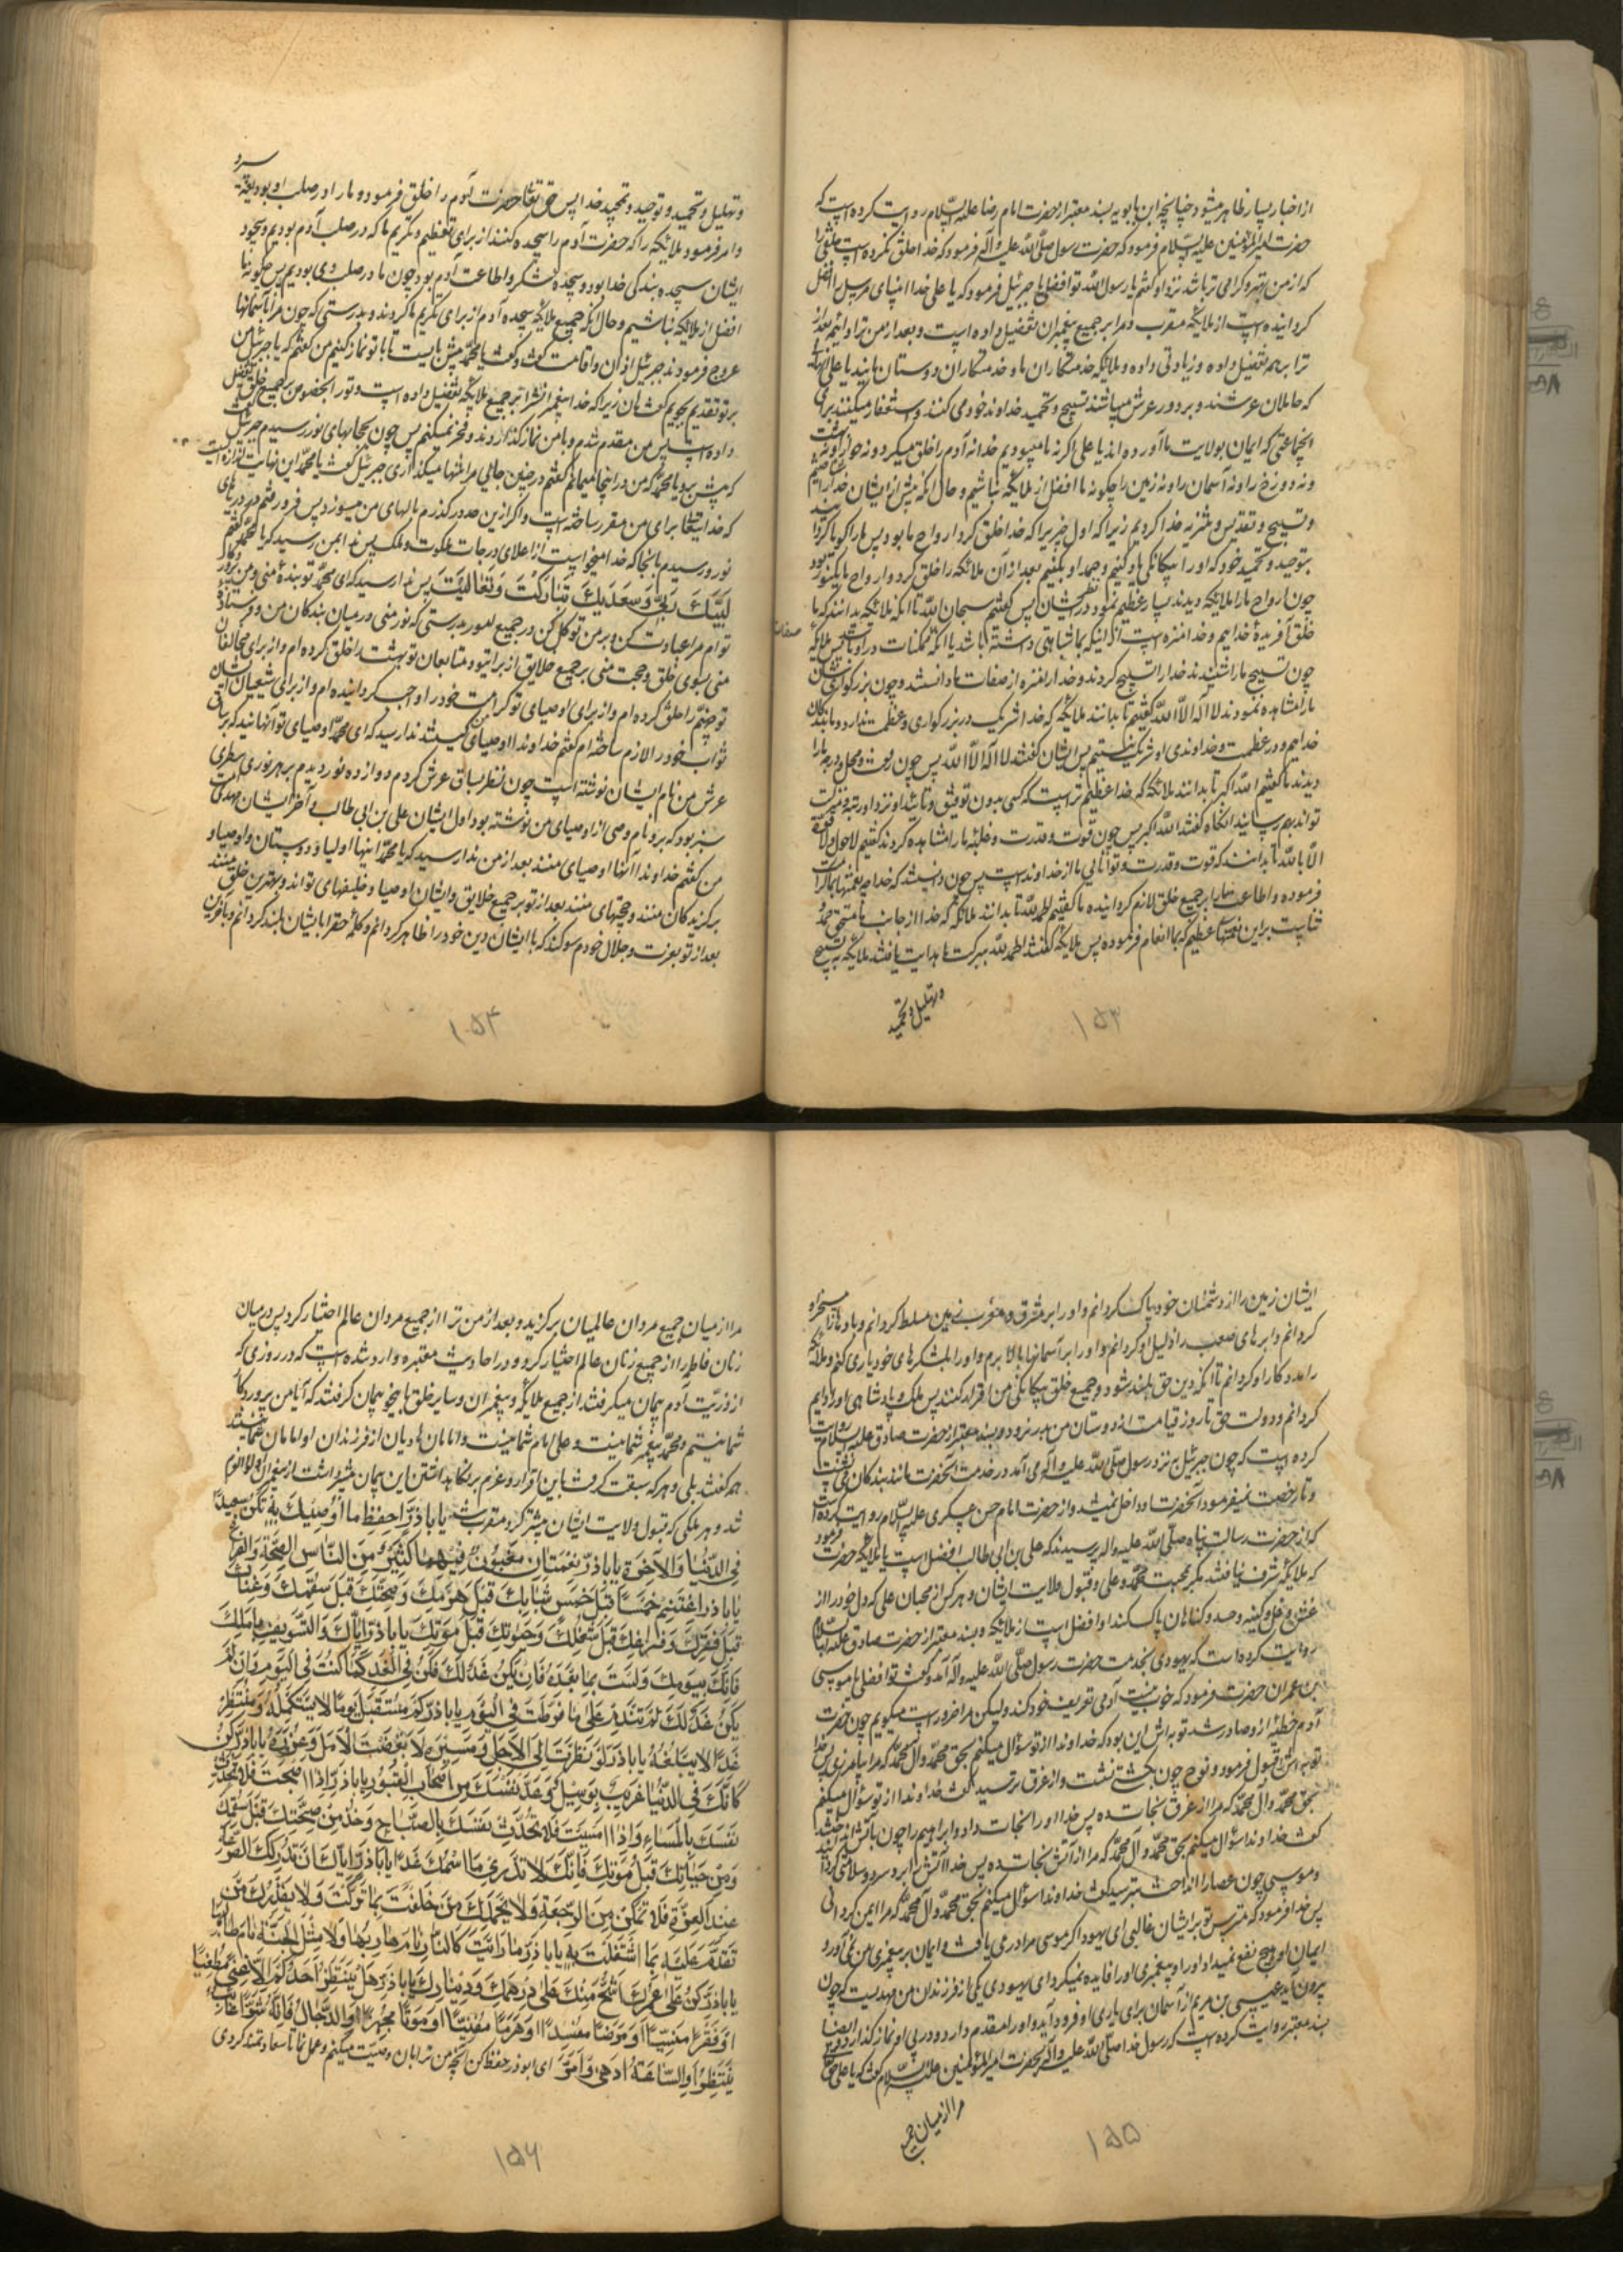 از اخبار بسیار ظاهر میشود چنانچه ابن بابویه بسند معتبر از حضرت امام رضا علیه السلام روایت کرده است که
حضرت امیرالمؤمنین علیه السلام فرمود که حضرت رسول صلی الله علیه و آله فرمود که خدا خلق نکرده است خلقی را
که از من بهتر و گرامی تر باشد نزد او گفتم یا رسول الله تو افضلی یا جبرئیل فرمود که یا علی خدا انبیای مرسل را افضل
گردانیده است از ملایکه مقرب و مرا بر جمیع پیغمبران تفضیل داده است و بعد از من ترا و ائمه بعد از
ترا بر همه تفضیل داده و زیادتی داده و ملایکه خدمتکاران ما و خدمتکاران دوستان مایند یا علی آنها
که حاملان عرشند و بر دور عرش میباشند تسبیح و تحمید خداوند خود می کنند و استغفار میکنند برای
آنجماعتی که ایمان بولایت ما آورده اند یا علی اگر نه ما میبودیم خدا نه آدم را خلق میکرد و نه حوا و نه بهشت
و نه دوزخ را و نه آسمان را و نه زمین را چگونه ما افضل از ملایکه نباشیم و حال آنکه پیش از ایشان خدا را شناختیم
و تسبیح و تقدیس و تنزیه خدا کردیم زیرا که اول چیزی را که خدا خلق کرد ارواح ما بود پس ما را گویا کرد
بتوحید و تحمید خود که او را بیگانگی یاد کنیم و حمد او بکنیم بعد از آن ملائکه را خلق کرد و ارواح ما یک نور بود
چون ارواح ما را ملایکه دیدند بسیار عظیم نمود در نظر ایشان پس گفتیم سبحان الله تا آنکه ملائکه بدانند که ما
خلق آفریدهٔ خداییم و خدا منزه است از اینکه بما شباهتی داشته باشد یا آنکه صفات ممکنات در او باشد پس ملایکه
چون تسبیح ما را شنیدند خدا را تسبیح کردند و خدا را منزه از صفات ما دانستند و چون بزرگواری شأن
ما را مشاهده نمودند لا اله الا الله گفتیم تا بدانند ملائکه که خدا شریک در بزرگواری و عظمت ندارد و ما بندگان
خداییم و در عظمت و خداوندی او شریک نیستیم پس ایشان گفتند لا اله الا الله پس چون رفعت و محل و درجه ما را
دیدند ما گفتیم الله اکبر تا بدانند ملائکه که خدا عظیم تر است که کسی بدون توفیق و تأیید او نزد او رتبه و منزلت
تواند بهم رسانید آنگاه گفتند الله اکبر پس چون قوت و قدرت و غلبه ما را مشاهده کردند گفتیم لا حول و لا قوة
الا بالله تا بدانند که قوت و قدرت و توانایی ما از خداوند است پس چون دانستند که خدا چه نعمتها بما کرامت
فرموده و اطاعت ما را بر جمیع خلق لازم گردانیده ما گفتیم الحمد لله تا بدانند ملائکه که خدا از جانب ما مستحق حمد و
ثناست بر این نعمتهای عظیم که بما انعام فرموده پس ملایکه گفتند الحمد لله ببرکت ما هدایت یافتند ملایکه به تسبیح
و تهلیل و تحمید
۱۵۳
و تهلیل و تحمید و توحید و تمجید خدا پس حق تعالی حضرت آدم را خلق فرمود و ما را در صلب او بودیعه سپرد
و امر فرمود ملائکه را که حضرت آدم را سجده کنند از برای تعظیم و تکریم ما که در صلب آدم بودیم و سجود
ایشان سجده بندگی خدا بود و سجده شکر و اطاعت آدم بود چون ما در صلب وی بودیم پس چگونه ما
افضل از ملایکه نباشیم و حال آنکه جمیع ملایکه سجده آدم از برای تکریم ما کردند و بدرستی که چون مرا بآسمانها
عروج فرمودند جبرئیل اذان و اقامت گفت و گفت یا محمد پیش بایست تا با تو نماز کنیم من گفتم که یا جبرئیل من
بر تو تقدیم بجویم گفت آن زیرا که خدا پیغمبرانش را بر جمیع ملایکه تفضیل داده است و تو را بخصوص بر جمیع خلق تفضیل
داده است پس من مقدم شدم و با من نماز گذاردند و فخر نمیکنم پس چون بحجابهای نور رسیدم جبرئیل گفت
که پیش برو یا محمد که من در اینجا میمانم گفتم در چنین جایی مرا تنها میگذاری جبرئیل گفت یا محمد این نهایت اندازه ایست
که خدا برای من مقرر ساخته است و اگر ازین حد در گذرم بالهای من میسوزد پس فرو رفتم در دریای
نور و رسیدم بآنجا که خدا میخواست از اعلای درجات ملکوت و ملک پس ندا بمن رسید که یا محمد گفتم
لَبَّیْکَ رَبّی وَسَعْدَیْکَ تَبارَکْتَ وَتَعالَیْتَ پس ندا رسید که ای محمد تو بندهٔ منی و من پروردگار
توام مرا عبادت کن و بر من توکل کن در جمیع امور بدرستی که نور منی در میان بندگان من و فرستادهٔ
منی بسوی خلق و حجت منی بر جمیع خلایق از برای تو و متابعان تو بهشت را خلق کرده ام و از برای مخالفان
تو جهنم را خلق کرده ام و از برای اوصیای تو کرامت خود را واجب گردانیده ام و از برای شیعیان ایشان
ثواب خود را لازم ساخته ام گفتم خداوندا اوصیای من کیستند ندا رسید که ای محمد اوصیای تو آنهایند که بر ساق
عرش من نام ایشان نوشته است چون نظر بساق عرش کردم دوازده نور دیدم بر هر نوری سطری
سبز بود که برو نام وصی از اوصیای من نوشته بود اول ایشان علی بن ابی طالب و آخر ایشان مهدی امت
من گفتم خداوندا آنها اوصیای منند بعد از من ندا رسید که یا محمد اینها اولیا و دوستان و اوصیا و
برگزیدگان منند و حجتهای منند بعد از تو بر جمیع خلایق و ایشان اوصیا و خلیفهای تواند و بهترین خلق منند
بعد از تو بعزت و جلال خودم سوگند که با ایشان دین خود را ظاهر گردانم و کلمه حق را بایشان بلند گردانم و بآخرین
۱۵۴
ایشان زمین را از دشمنان خود پاک گردانم و او را بر مشرق و مغرب زمین مسلط گردانم و بادها را مسخر او
گردانم و ابرهای صعب را ذلیل او گردانم و او را بر آسمانها بالا برم و او را بلشکرهای خود یاری کنم و ملائکه
را مددکار او گردانم تا آنکه دین حق بلند شود و جمیع خلق بیگانگی من اقرار کنند پس ملک و پادشاهی او را دایم
گردانم و دولت حق تا روز قیامت از دوستان من بدر نرود و بسند معتبر از حضرت صادق علیه السلام روایت
کرده است که چون جبرئیل نزد رسول صلی الله علیه و آله می آمد در خدمت آنحضرت مانند بندگان می نشست
و تا رخصت نمیفرمود آنحضرت او داخل نمیشد و از حضرت امام حسن عسکری علیه السلام روایت کرده است
که از حضرت رسالت پناه صلی الله علیه و اله پرسیدند که علی بن ابی طالب افضل است یا ملایکه حضرت فرمود
که ملایکه شرف نیافتند مگر بمحبت محمد و علی و قبول ولایت ایشان و هر کس از محبان علی که دل خود را از
غش و غل و کینه و حسد و گناهان پاک کند او افضل است از ملایکه و بسند معتبر از حضرت صادق علیه السلام
روایت کرده است که یهودی بخدمت حضرت رسول صلی الله علیه و اله آمد و گفت تو افضلی یا موسی
بن عمران حضرت فرمود که خوب نیست آدمی تعریف خود کند ولیکن مرا ضرور است میگویم چون حضرت
آدم خطیئه ازو صادر شد توبه اش این بود که خداوندا از تو سؤال میکنم بحق محمد و آل محمد که مرا بیامرزی پس خدا
توبه اش را قبول فرمود و نوح چون بکشتی نشست و از غرق ترسید گفت خداوندا از تو سؤال میکنم
بحق محمد و آل محمد که مرا از غرق نجات ده پس خدا او را نجات داد و ابراهیم را چون بآتش انداختند
گفت خداوندا سؤال میکنم بحق محمد و آل محمد که مرا از آتش نجات ده پس خدا آتش را برو سرد و سلامت گردانید
و موسی چون عصا را انداخت بترسید گفت خداوندا سؤال میکنم بحق محمد و آل محمد که مرا ایمن گردانی
پس خدا فرمود که مترس تو برایشان غالبی ای یهود اگر موسی مرا در می یافت و ایمان بر پیغمبری من نمی آورد
ایمان او هیچ نفع نمیداد او را و پیغمبری او را فایده نمیکرد ای یهودی یکی از فرزندان من مهدیست که چون
بیرون آید عیسی بن مریم از آسمان برای یاری او فرود آید و او را مقدم دارد و در پی او نماز گذارد و ایضا
بسند معتبر روایت کرده است که رسول خدا صلی الله علیه و آله بحضرت امیرالمؤمنین علیه السلام گفت که یا علی حق تعالی
مرا از میان جمیع
۱۵۵
مرا از میان جمیع مردان عالمیان برگزید و بعد از من ترا از جمیع مردان عالم اختیار کرد پس در میان
زنان فاطمه را از جمیع زنان عالم اختیار کرد و در احادیث معتبره وارد شده است که در روزی که
از ذریّت آدم پیمان میگرفتند از جمیع ملایکه و پیغمبران و سایر خلق باینحو پیمان گرفتند که آیا من پروردگار
شما نیستم و محمد پیغمبر شما نیست و علی امام شما نیست و امامان هادیان از فرزندان او امامان شما نیستند
همه گفتند بلی و هر که سبقت گرفت باین اقرار و عزم بر نگاهداشتن این پیمان بیشتر داشت از پیغمبران اولوالعزم
شد و هر ملکی که قبول ولایت ایشان بیشتر کرد مقرب شد یا اباذَرّ اِحفَظْ ما اُوصیکَ بِهِ تَکُنْ سَعیداً
فِی الدُّنیا وَالآخِرَةِ یا اباذَرّ نِعْمَتانِ مَغْبُونٌ فیهِما کَثیرٌ مِنَ النّاسِ الصِّحَّةُ وَالفَراغُ
یا اباذر اِغْتَنِمْ خَمْساً قَبْلَ خَمْسٍ شَبابَکَ قَبْلَ هَرَمِکَ وَصِحَّتَکَ قَبْلَ سُقْمِکَ وَغِناکَ
قَبْلَ فَقْرِکَ وَفَراغَکَ قَبْلَ شُغْلِکَ وَحَیوتَکَ قَبْلَ مَوْتِکَ یا اباذَرّ اِیّاکَ وَالتَّسْویفَ بِاَمَلِکَ
فَاِنَّکَ بِیَوْمِکَ وَلَسْتَ بِما بَعْدَهُ فَاِنْ یَکُنْ غَدٌ لَکَ فَکُنْ فِی الْغَدِ کَما کُنْتَ فِی الْیَوْمِ وَاِنْ لَمْ
یَکُنْ غَدٌ لَکَ لَمْ تَنْدَمْ عَلی ما فَرَّطْتَ فِی الْیَوْمِ یا اباذَرّ کَمْ مُسْتَقْبِلٍ یَوْماً لا یَسْتَکْمِلُهُ وَمُنْتَظِرٍ
غَداً لا یَبْلُغُهُ یا اباذَرّ لَوْ نَظَرْتَ اِلَی الْاَجَلِ وَمَسیرِهِ لَاَبْغَضْتَ الْاَمَلَ وَغُرُورَهُ یا اباذَرّ کُنْ
کَاَنَّکَ فِی الدُّنْیا غَریبٌ اَوْ کَعابِرِ سَبیلٍ وَعُدَّ نَفْسَکَ مِنْ اَصْحابِ الْقُبُورِ یا اباذَرّ اِذا اَصْبَحْتَ فَلا تُحَدِّثْ
نَفْسَکَ بِالْمَساءِ وَاِذا اَمْسَیْتَ فَلا تُحَدِّثْ نَفْسَکَ بِالصَّباحِ وَخُذْ مِنْ صِحَّتِکَ قَبْلَ سُقْمِکَ
وَمِنْ حَیاتِکَ قَبْلَ مَوْتِکَ فَاِنَّکَ لا تَدْری مَا اسْمُکَ غَداً یا اباذَرّ اِیّاکَ اَنْ تُدْرِکَکَ الصَّرْعَةُ
عِنْدَ الْعِزَّةِ فَلا تُمَکَّنُ مِنَ الرَّجْعَةِ وَلا یَحْمَدُکَ مَنْ خَلَّفْتَ بِما تَرَکْتَ وَلا یَعْذِرُکَ مَنْ
تَقْدَمُ عَلَیْهِ بِمَا اشْتَغَلْتَ بِهِ یا اباذَرّ ما رَاَیْتُ کَالنّارِ نامَ هارِبُها وَلا مِثْلَ الْجَنَّةِ نامَ طالِبُها
یا اباذَرّ کُنْ عَلی عُمْرِکَ اَشَحَّ مِنْکَ عَلی دِرْهَمِکَ وَدینارِکَ یا اباذَرّ هَلْ یَنْتَظِرُ اَحَدُکُمْ اِلّا غِنیً مُطْغِیاً
اَوْ فَقْراً مُنْسِیاً اَوْ مَرَضاً مُفْسِداً اَوْ هَرَماً مُفْنِیاً اَوْ مَوْتاً مُجْهِزاً اَوِ الدَّجّالَ فَاِنَّهُ شَرُّ غائِبٍ
یُنْتَظَرُ اَوِ السّاعَةَ اَدْهی وَاَمَرُّ ای ابوذر حفظ کن آنچه من ترا بآن وصیّت میکنم و عمل نما تا سعادتمند گردی
۱۵۶